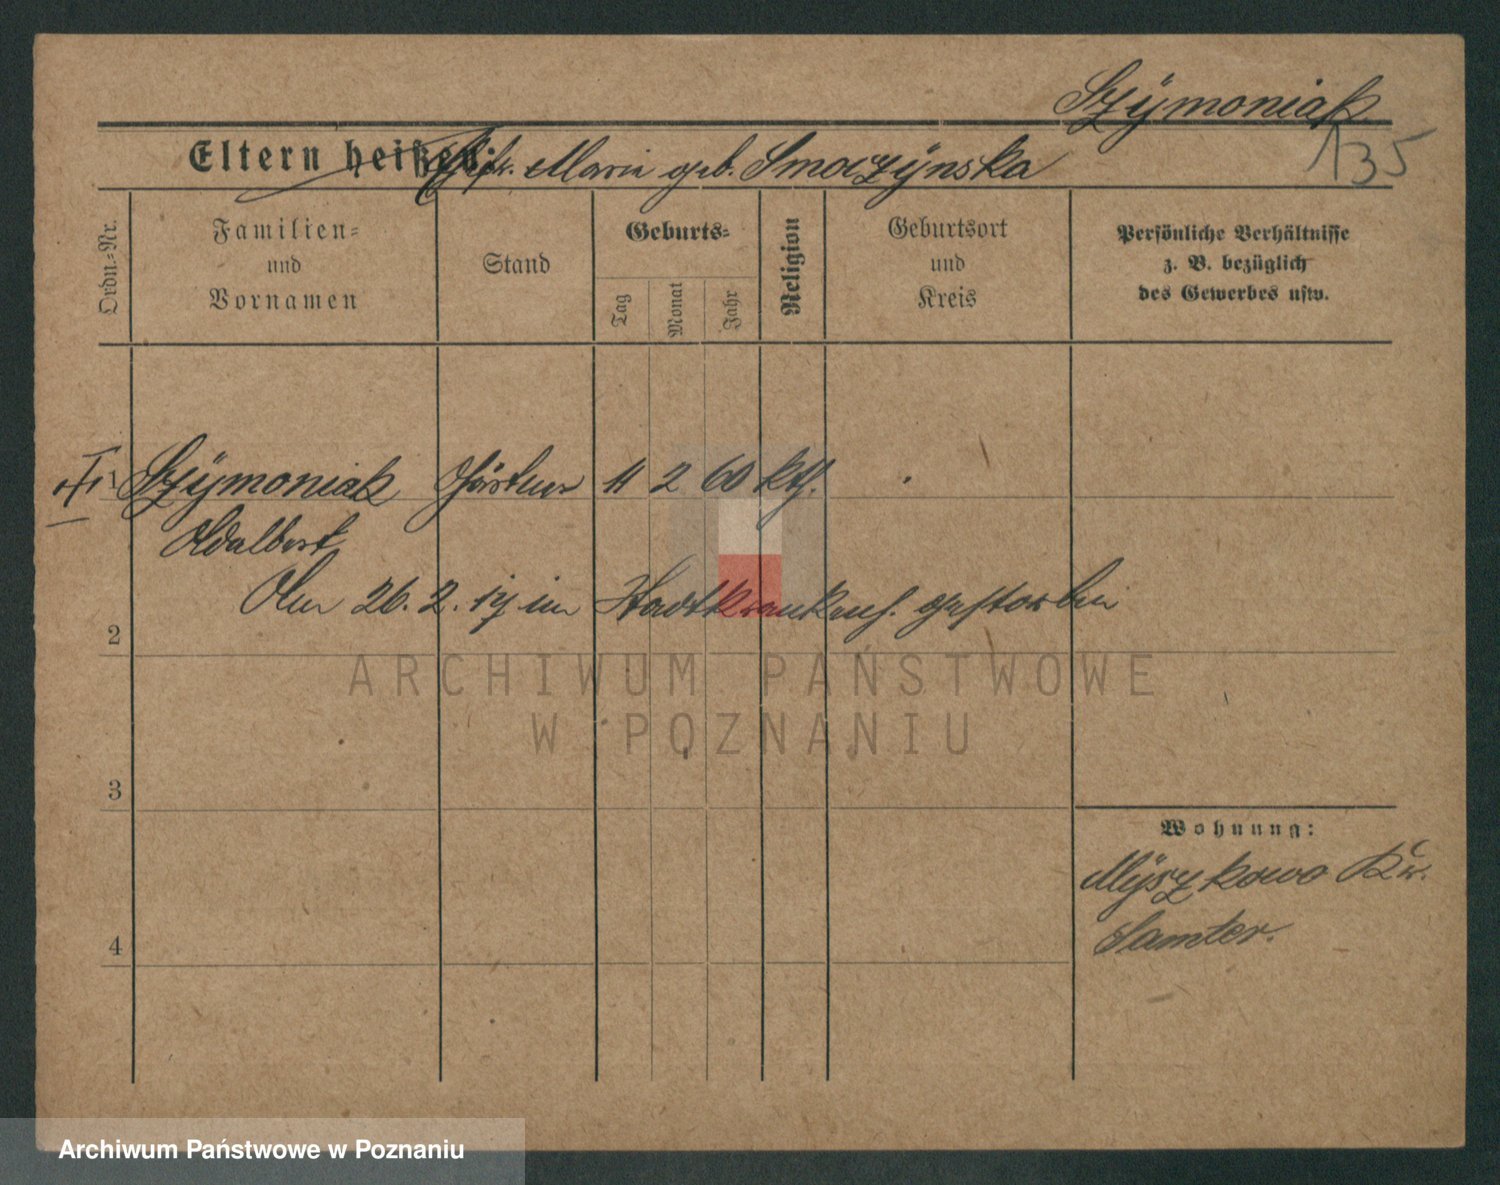 Szÿmoniak
135
Eltern heißen: Ehefr. Maria geb. Smoczÿnska
Ordn.-Nr.
Familien- und Vornamen
Stand
Geburts-
Tag
Monat
Jahr
Religion
Geburtsort und Kreis
Persönliche Verhältnisse
z. B. bezüglich
des Gewerbes usw.
1 Szÿmoniak Gärtner 11 2 60 kth.
Adalbert
Am 26. 2. 17 im Stadtkrankenh. gestorben
2
3
4
Wohnung:
Mÿszkowo Kr.
Samter.
ARCHIWUM PAŃSTWOWE
W POZNANIU
Archiwum Państwowe w Poznaniu